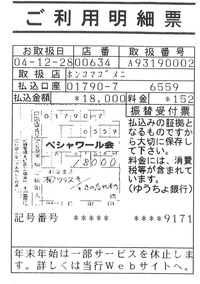 ご利用明細票
お取扱日 店番 取扱番号
04-12-28 00634 A93190002
取扱店 ホンコマゴメニ
払込口座 01790-7 6559
払込金額 *18,000 料金 *152
振替受付票
払込みの証拠と
なるものですか
ら大切に保存し
て下さい。
料金には、消費
税等が含まれて
います。
(ゆうちょ銀行)
01790 7
ペシャワール会
18000
記号番号 ***** ****9171
年末年始は一部サービスを休止しま
す。詳しくは当行Webサイトへ。